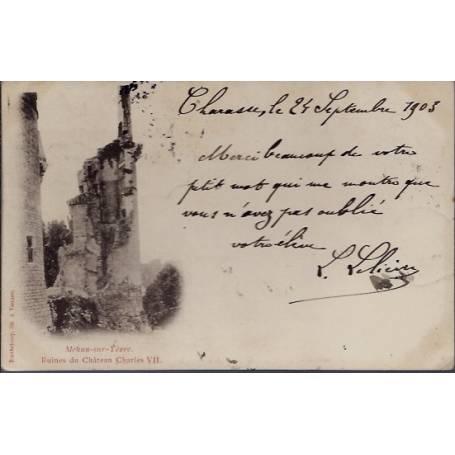 le 24 Septembre 1903
Merci beaucoup de votre
ptit mot qui me montre que
vous n'avez pas oublié
votre élève
Mehun-sur-Yèvre.
Ruines du Château Charles VII.